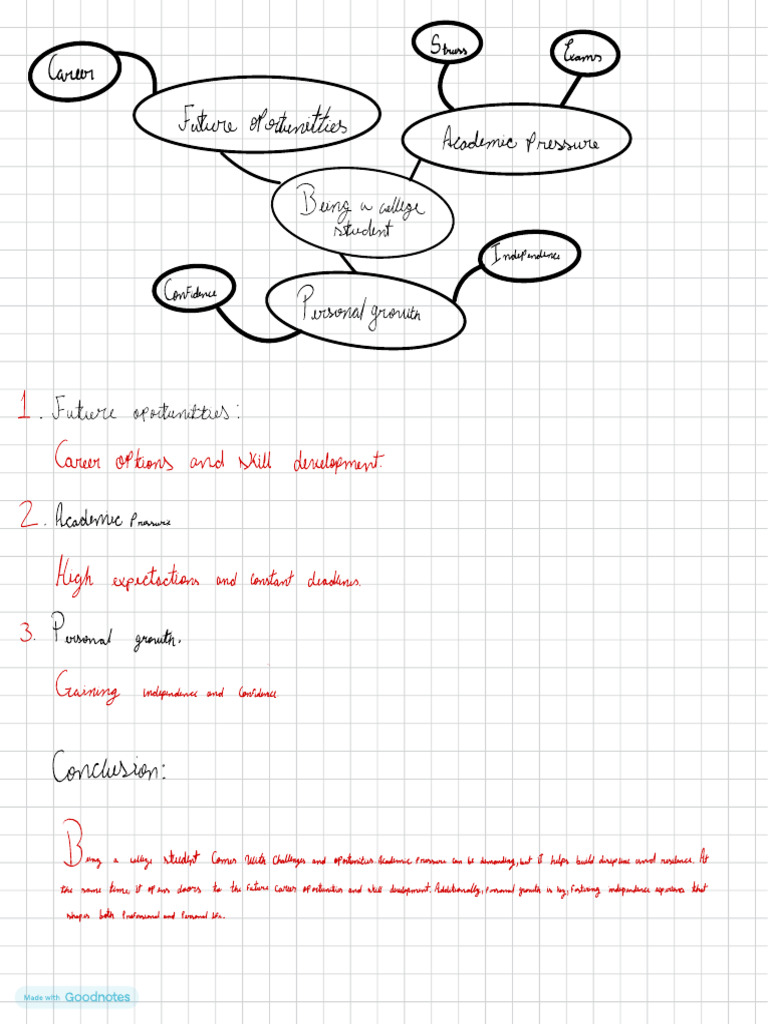 Stress
Exams
Career
Future oportunitties
Academic pressure
Being a college
student
Independence
Confidence
Personal growth
1. Future oportunitties:
Career options and skill development.
2. Academic Pressure
High expectactions and constant deadlines.
3. Personal growth.
Gaining independence and confidence
Conclusion:
Being a college student comes with challenges and oportunities. Academic pressure can be demanding, but it helps build and resilience. At
the same time, it opens doors to the future career oportunities and skill development. Additionally, personal growth is key, fostering independence experience that
shapes both Professional and Personal life.
Made with Goodnotes